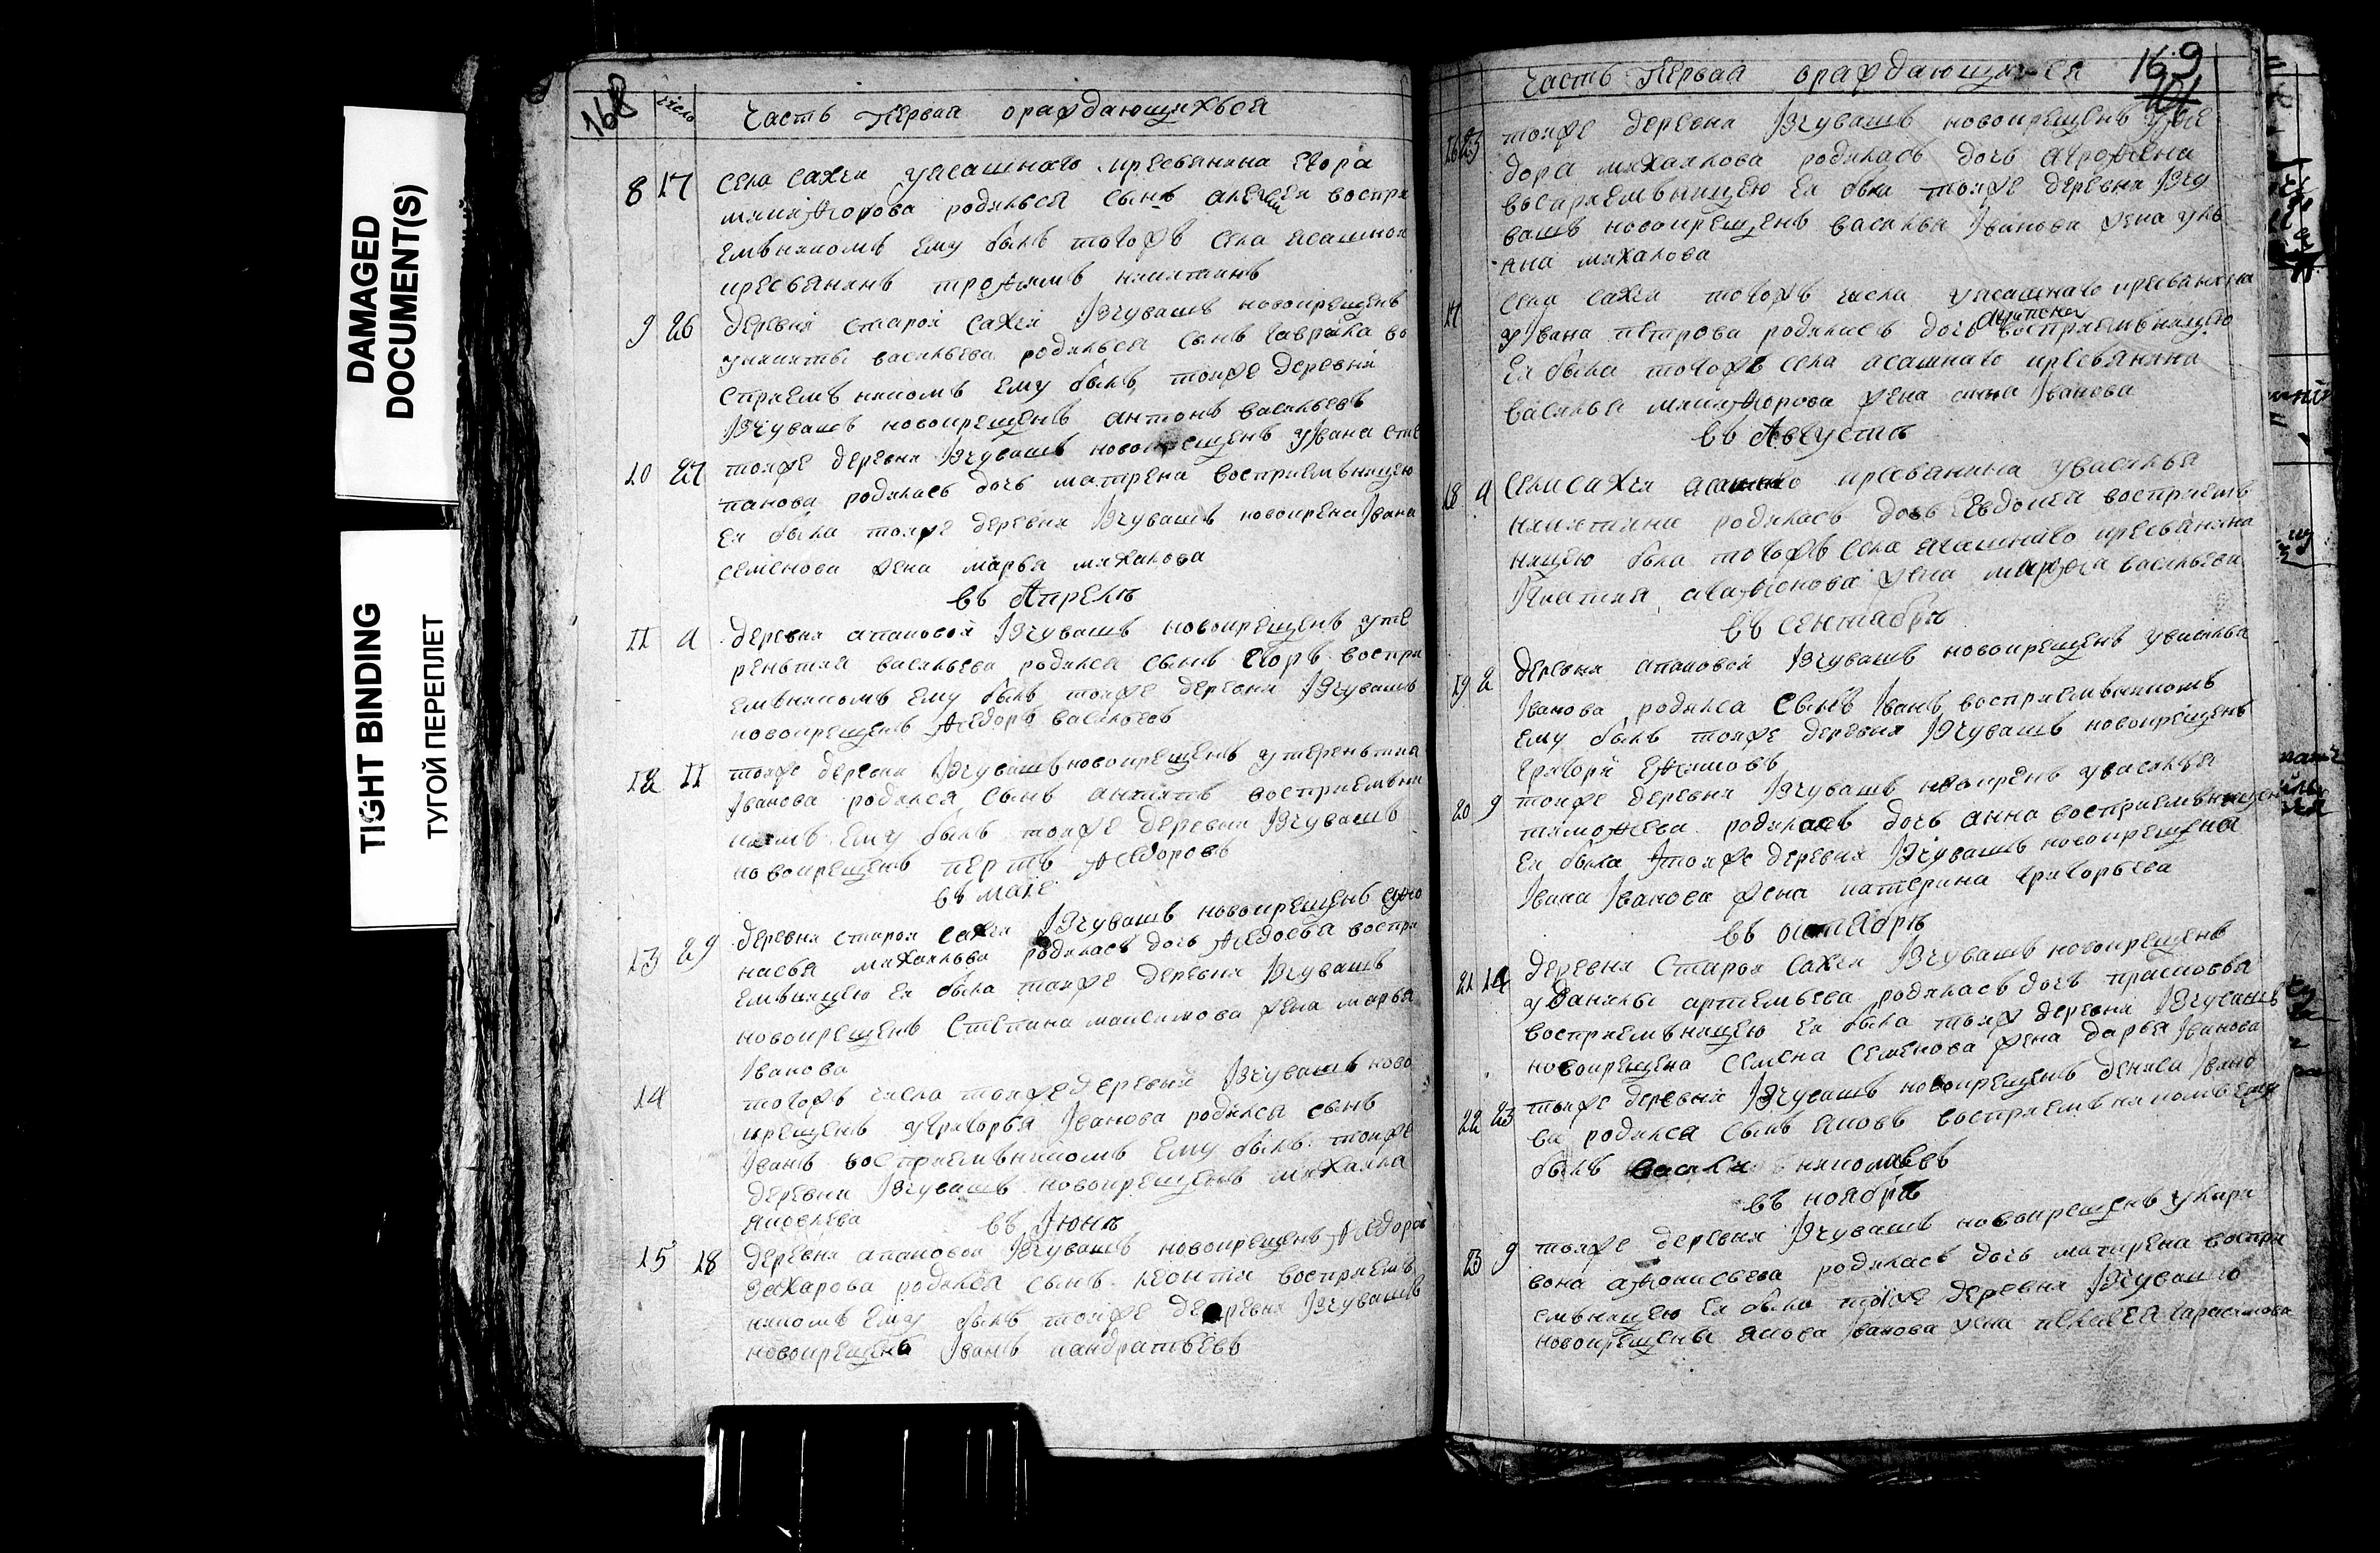 DAMAGED
DOCUMENT(S)
TIGHT BINDING
ТУГОЙ ПЕРЕПЛЕТ
168
число
Часть Первая ораждающихься
8 17 Села Сахчи уясашнаго кресьянина Егора
родилься сынъ алексеи воспри
емъникомъ Ему былъ тогожъ Села ясашнои
кресьянинъ трофимъ никитинъ
9 26 деревни старои Сахчи Ізчувашъ новокрещенъ
уникиты васильева родилься Сынъ гаврила во
сприемъникомъ Ему былъ тояже деревни
Ізчувашъ новокрещенъ антонъ васильевъ
10 27 тояже деревни Ізчувашъ новокрещенъ уІвана Сте
панова родилась дочь матрена восприемъницею
Ея была тояже деревни Ізчувашъ новокрена Івана
семенова жена марья михалова
въ Апреле
11 4 деревни апаковои Ізчувашъ новокрещенъ уте
рентия васильева родился сынъ Егоръ воспри
емъникомъ Ему былъ тояже деревни Ізчувашъ
новокрещенъ Федоръ васильевъ
12 11 тояже деревни Ізчувашъ новокрещенъ утерентиа
Іванова родился Сынъ восприемъни
комъ Ему былъ тояже деревни Ізчувашъ
новокрещенъ Федоровъ
въ маіе
13 29 деревни старои Сахчи Ізчувашъ новокрещенъ
михаилова родилась дочь Федосья воспри
емъницею Ея была тояже деревни Ізчувашъ
новокрещенъ Степана максимова жена марья
Іванова
14 тогожъ числа тояже деревни Ізчувашъ ново
крещенъ угригорья Іванова родился сынъ
Іванъ восприемъникомъ Ему былъ тояже
деревни Ізчувашъ новокрещенъ михаила
яковлева
въ Іюне
15 18 деревни апаковои Ізчувашъ новокрещенъ Федора
Захарова родился сынъ леонтии восприемъ
никомъ Ему былъ тояже деревни Ізчувашъ
новокрещенъ Іванъ кандратьевъ
169
101
Часть Первая ораждающихся
16 25 тояже деревни Ізчувашъ новокрещенъ уфе
дора михаилова родилась дочь агрофена
восприемъницею Ея была тояже деревни Ізчу
вашъ новокрещенъ василья Іванова жена уль
яна михалова
17 Села Сахчи тогожъ числа уясашнаго кресьянина
уІвана петрова родилась дочь восприемъницею
Ея была тогожъ села ясашнаго кресьянина
василья жена анна Іванова
въ Августе
18 4 Села Сахчи ясашнаго кресьянина увасилья
никитина родилась дочь Евдокея восприемъ
ницею была тогожъ села ясашнаго кресьянина
Ігнатия жена марфа васильева
въ сентябре
19 2 деревни апаковои Ізчувашъ новокрещенъ увасилья
Іванова родился Сынъ Іванъ восприемъникомъ
Ему былъ тояже деревни Ізчувашъ новокрещенъ
григори Ефимовъ
20 9 тояже деревни Ізчувашъ новокренъ увасилья
тимофеева родилась дочь анна восприемъницею
Ея была тояже деревни Ізчувашъ новокрещена
Івана Іванова жена катерина григорьева
въ октябре
21 14 деревни Старои Сахчи Ізчувашъ новокрещенъ
уданилы артемьева родилась дочь прасковья
восприемъницею Ея была тояж деревни Ізчувашъ
новокрещена семена семенова жена дарья Іванова
22 23 тояже деревни Ізчувашъ новокрещенъ дениса Івано
ва родился сынъ яковъ восприемъникомъ Ему
былъ
въ ноябре
23 9 тояже деревни Ізчувашъ новокрещенъ
родилась дочь матрена воспри
емъницею Ея была тояже деревни Ізчувашъ
новокрещены якова Іванова жена пелагея гарасимова